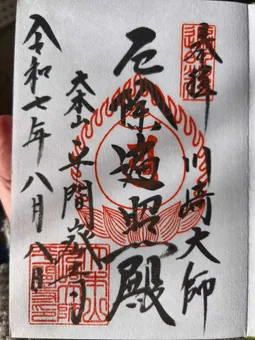 奉拝 川崎大師
厄除遍照殿
大本山 平間寺
令和七年八月八日